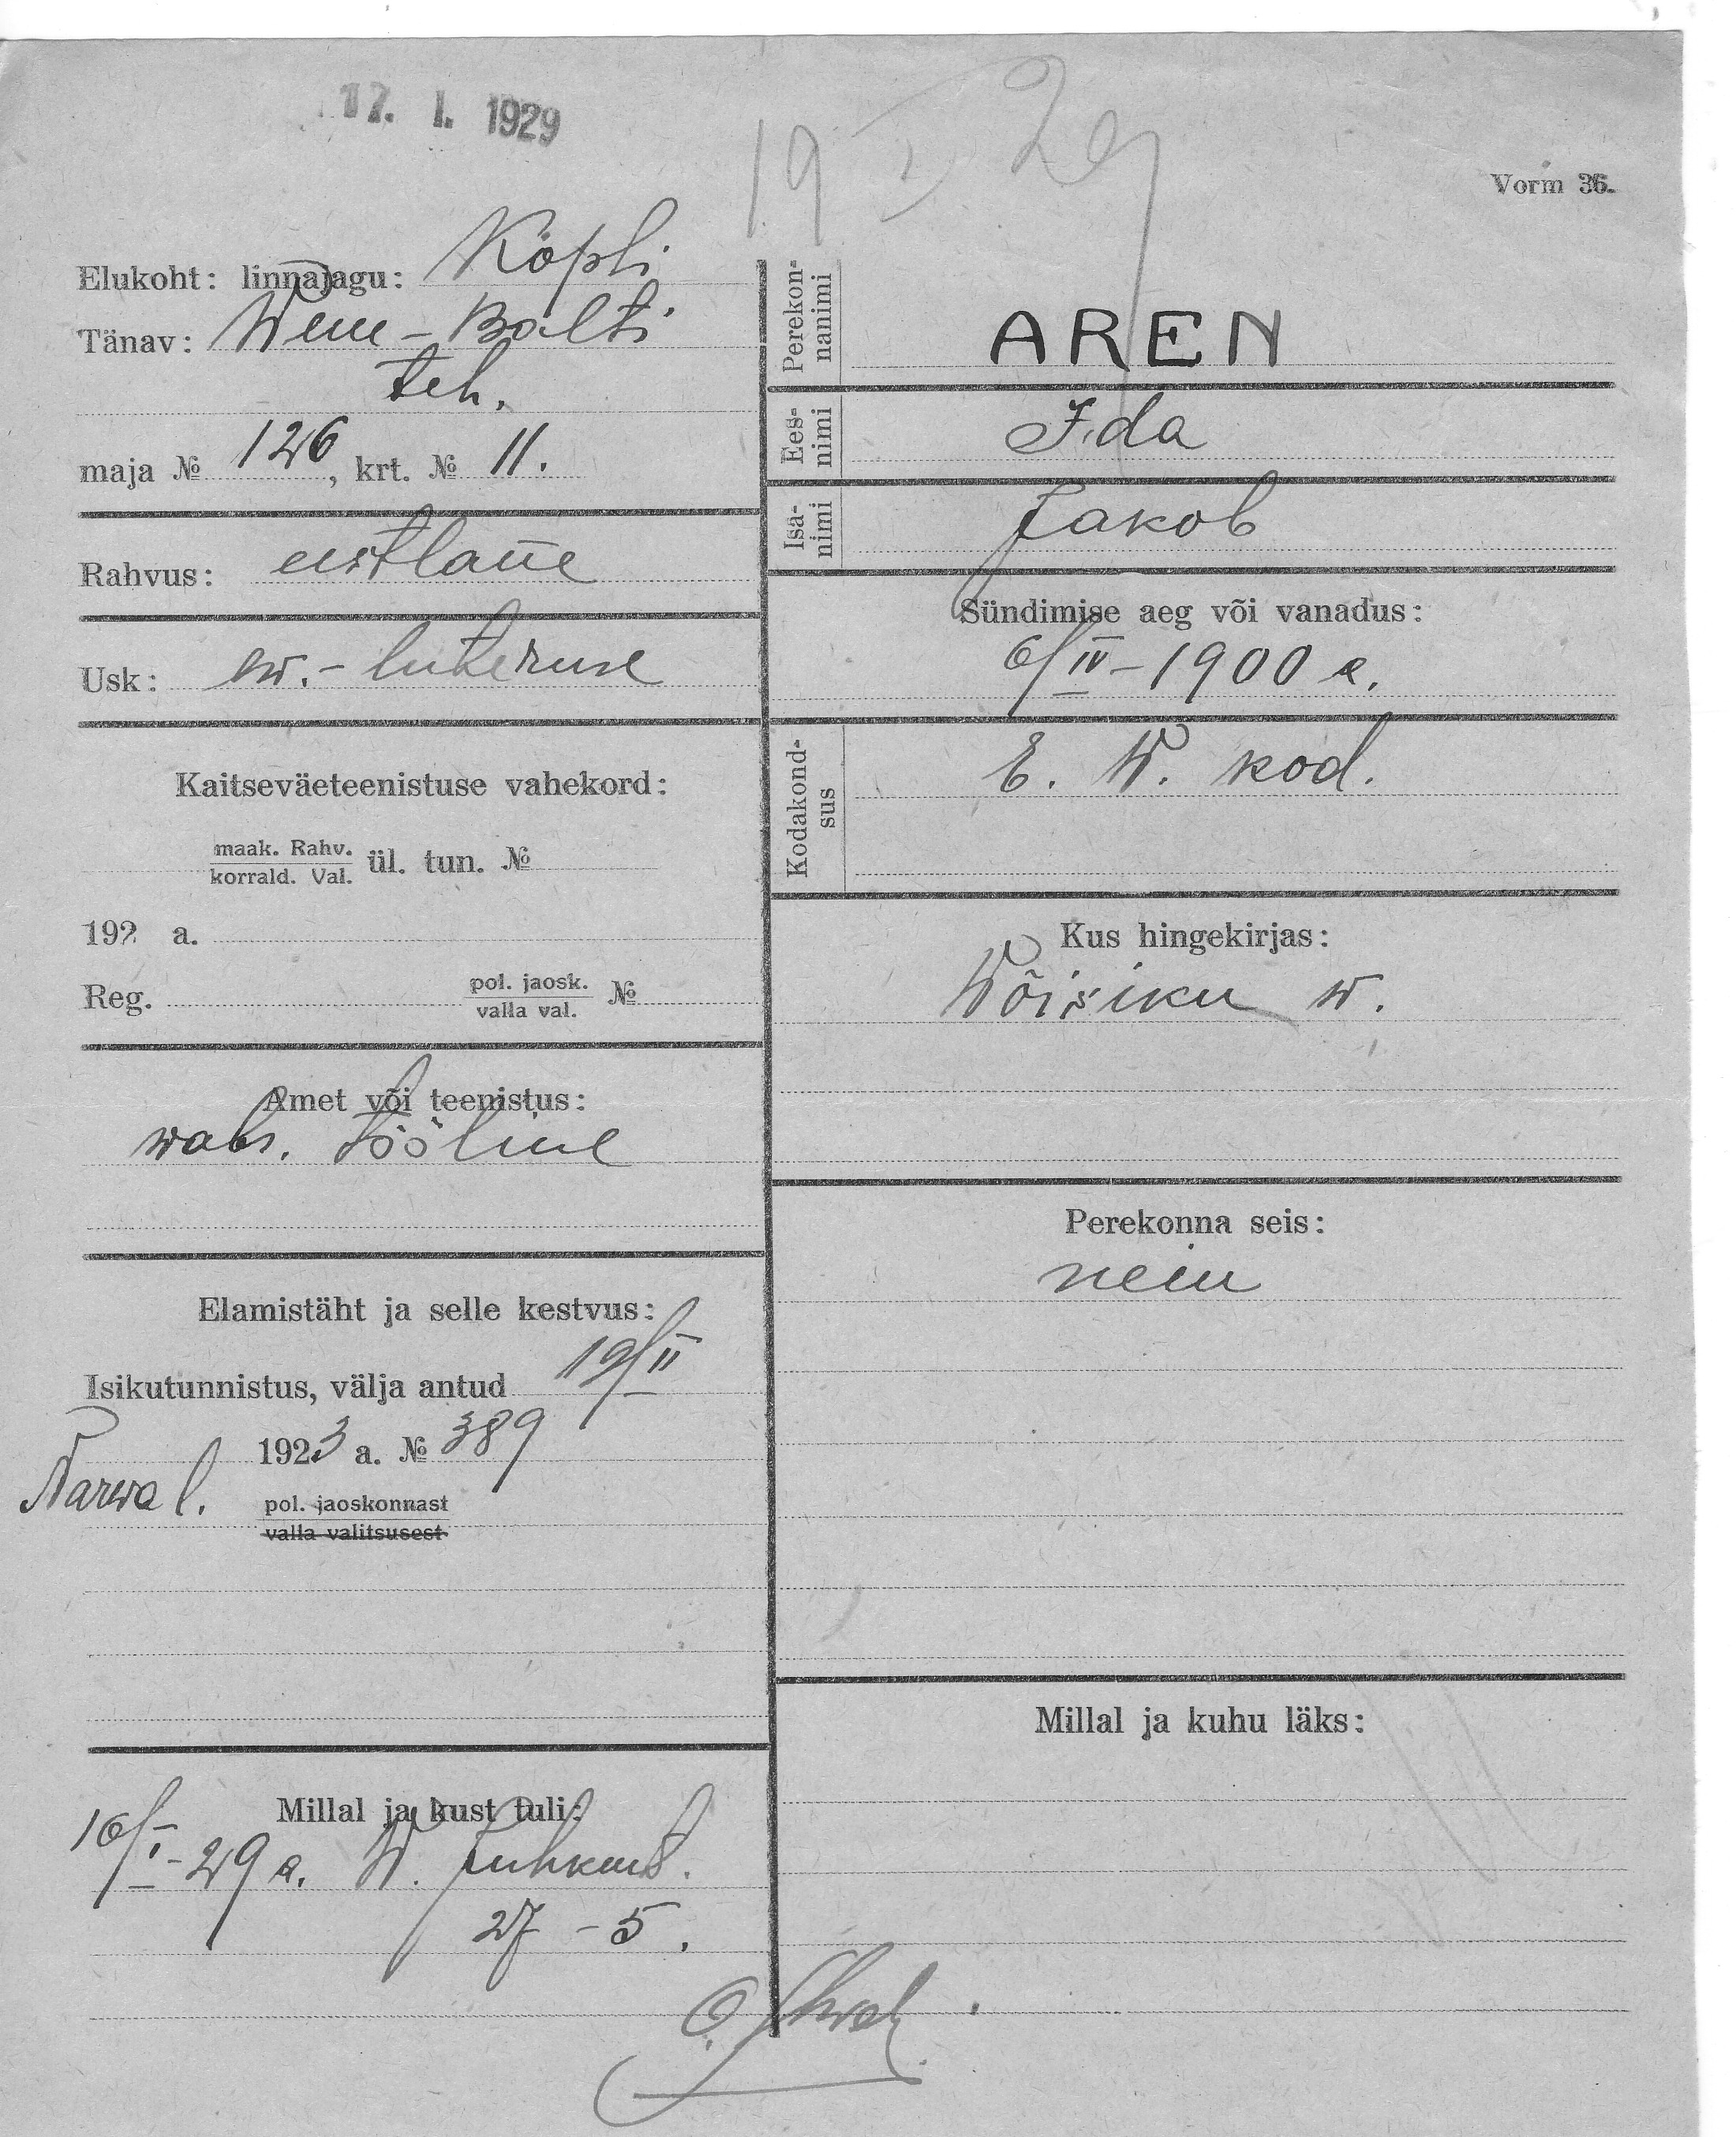 17. I. 1929
19 I 29
Vorm 36.
Elukoht: linnajagu: Kopli
Tänav: Wene-Balti
teh.
maja № 126, krt. № 11.
Rahvus: eestlane
Usk: ew.-luteruse
Kaitseväeteenistuse vahekord:
maak. Rahv.
korrald. Val. ül. tun. №
192 a.
Reg. pol. jaosk. №
valla val.
Amet või teenistus:
wabr. tööline
Elamistäht ja selle kestvus:
Isikutunnistus, välja antud 19/II
1923 a. № 389
Narwa l. pol. jaoskonnast
valla valitsusest
Millal ja kust tuli:
16/I-29 a. W.
27-5.
Perekon-
nanimi AREN
Ees-
nimi Ida
Isa-
nimi Jakob
Sündimise aeg või vanadus:
6/IV-1900 a.
Kodakond-
sus E. W. kod.
Kus hingekirjas:
Wõisiku w.
Perekonna seis:
neiu
Millal ja kuhu läks: